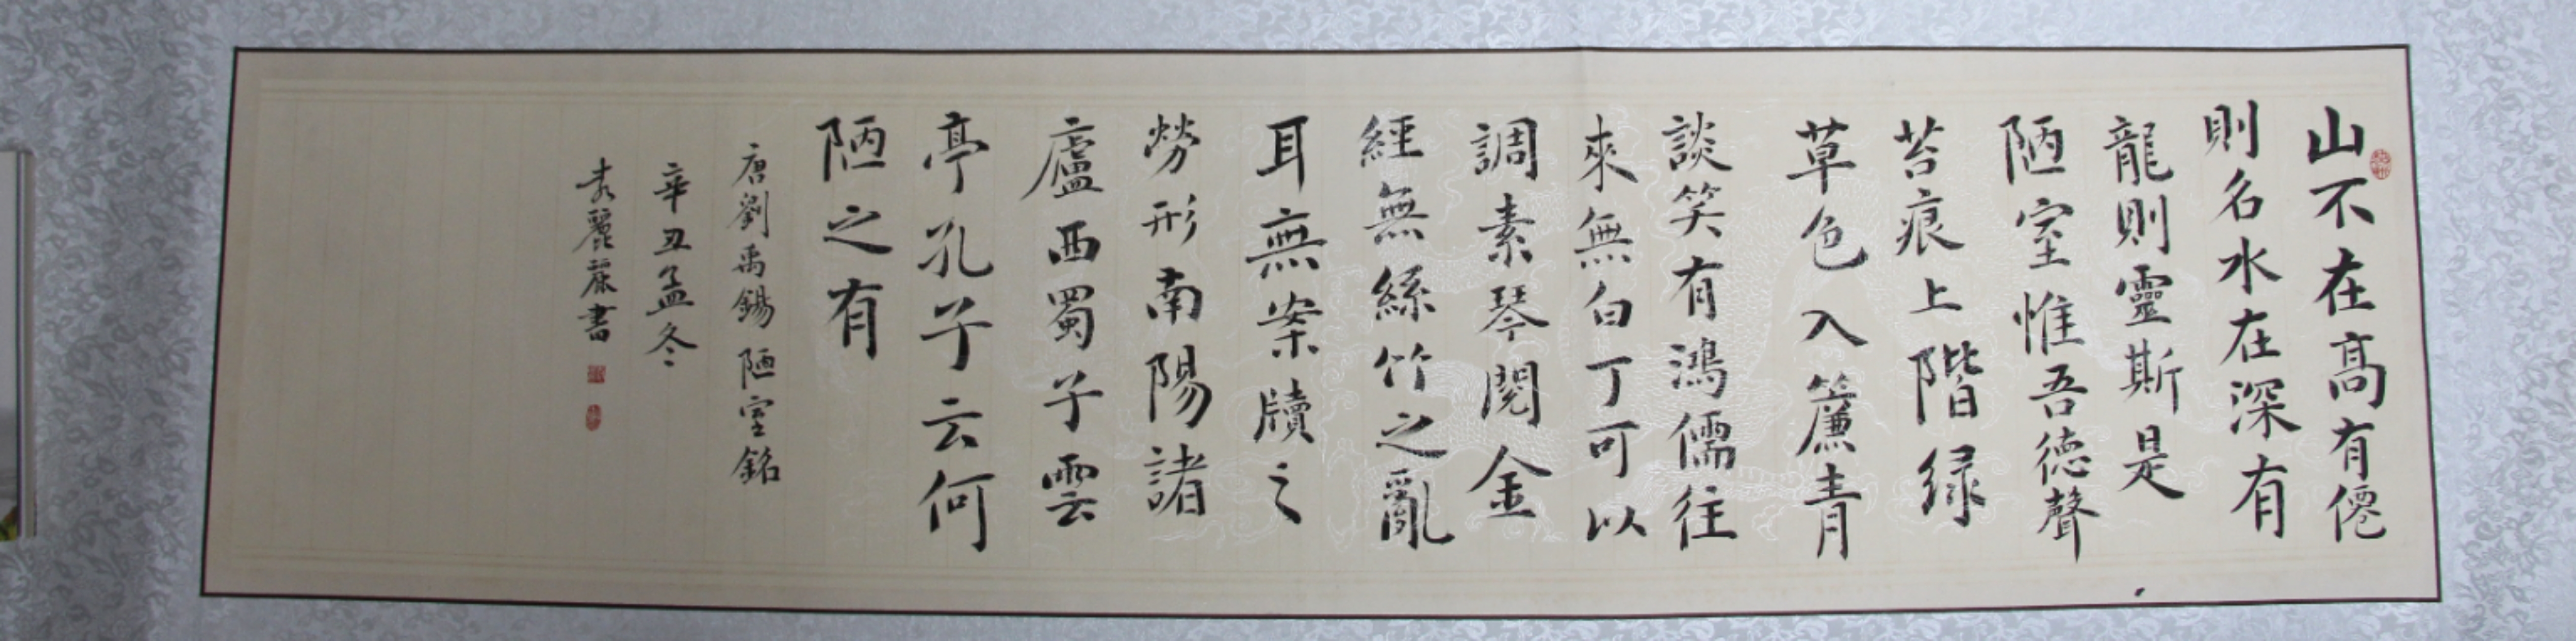 山不在高有僊
則名水在深有
龍則靈斯是
陋室惟吾德聲
苔痕上階緑
草色入簾青
談笑有鴻儒往
來無白丁可以
調素琴閱金
經無絲竹之亂
耳無案牘之
勞形南陽諸
廬西蜀子雲
亭孔子云何
陋之有
唐劉禹錫陋室銘
辛丑孟冬
麗麻書